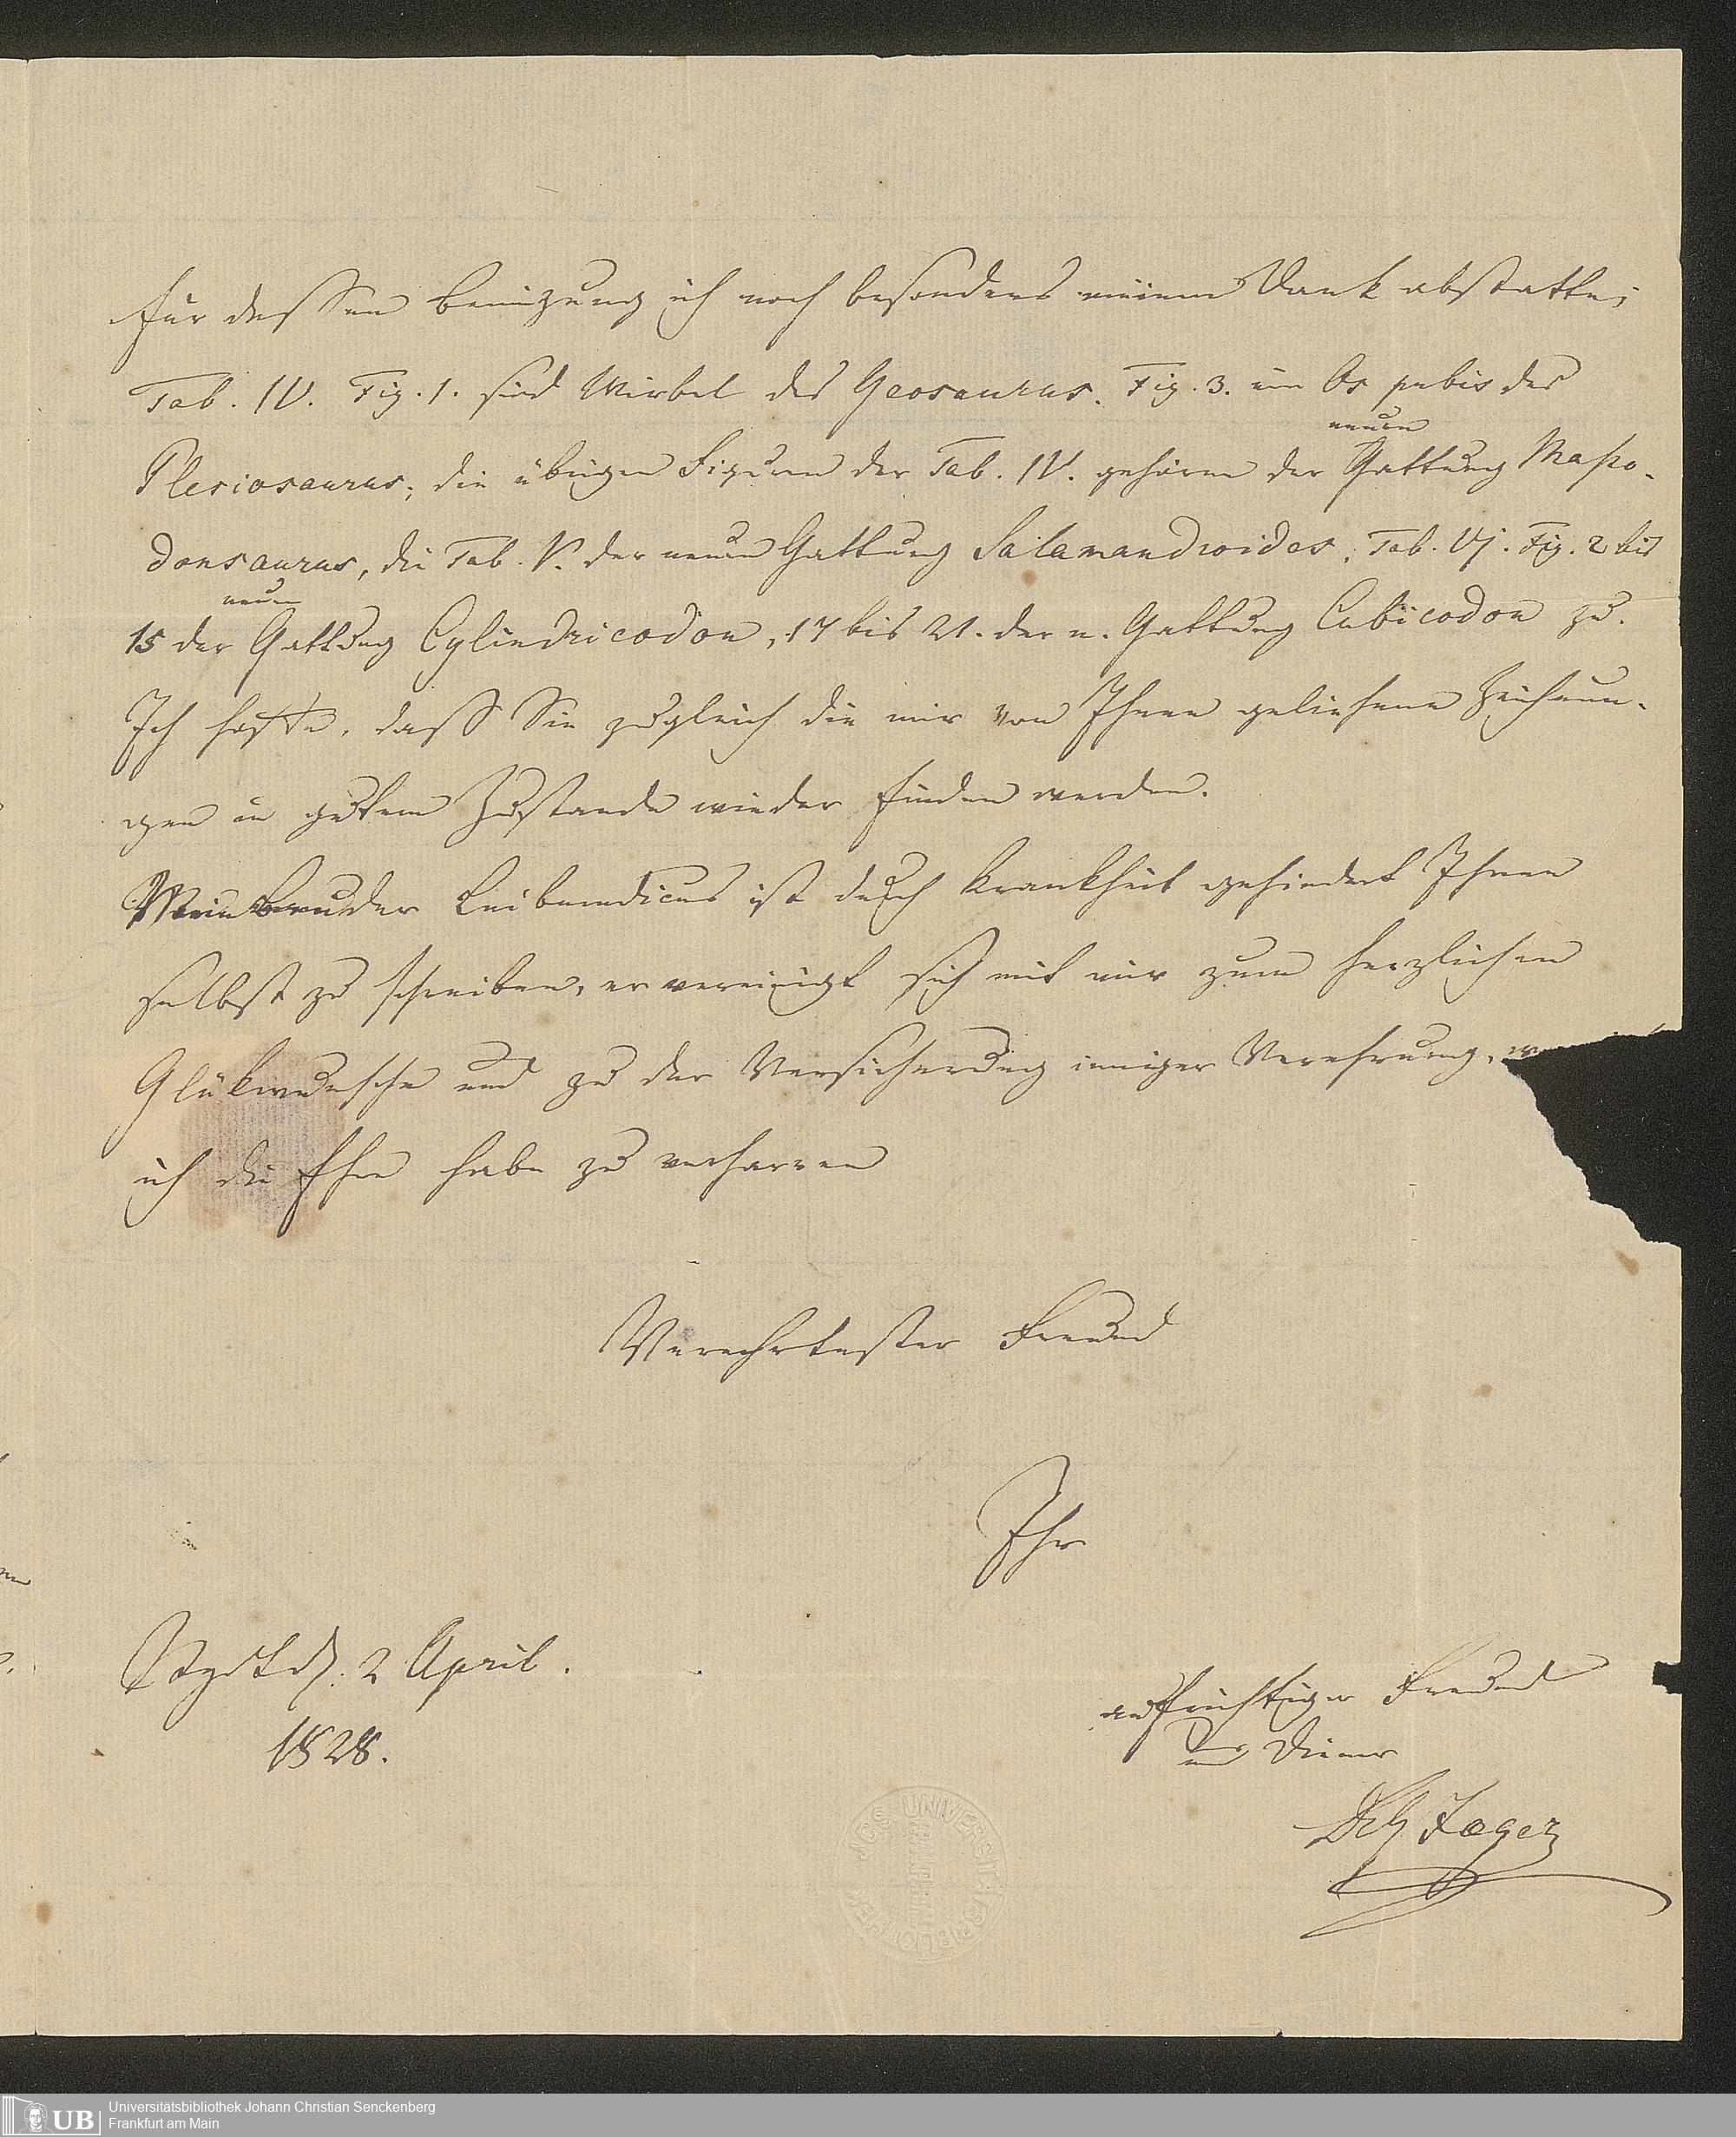 für dessen Benuzung ich noch besonders meinen Dank abstatte;
Tab. IV. Fig. 1. sind Wirbel des Geosaurus. Fig. 3. ein Os pubis des
neuen
Plesiosaurus; die übrigen Figuren der Tab. IV. gehören der Gattung Masto-
donsaurus, die Tab. V. der neuen Gattung Salamandroides, Tab. VI. Fig. 2 bis
neuen
15 der Gattung Cylindricodon, 17 bis 21. der n. Gattung Cubicodon zu.
Ich hoffe, daß Sie zugleich die mir von Ihnen geliehene Zeichnun-
gen in gutem Zustande wieder finden werden.
Mein Bruder Leibmedicus ist durch Krankheit gehindert Ihnen
selbst zu schreiben, er vereinigt sich mit mir zum herzlichen
Glükwunsche und zu der Versicherung inniger Verehrung,
ich die Ehre habe zu verharren
Verehrtester Freund
Ihr
Stgdt d. 2 April.
1828.
aufrichtiger Freund
und Diener
Jaeger
UNIVERSITÄTSBIBLIOTHEK
UB
Universitätsbibliothek Johann Christian Senckenberg
Frankfurt am Main